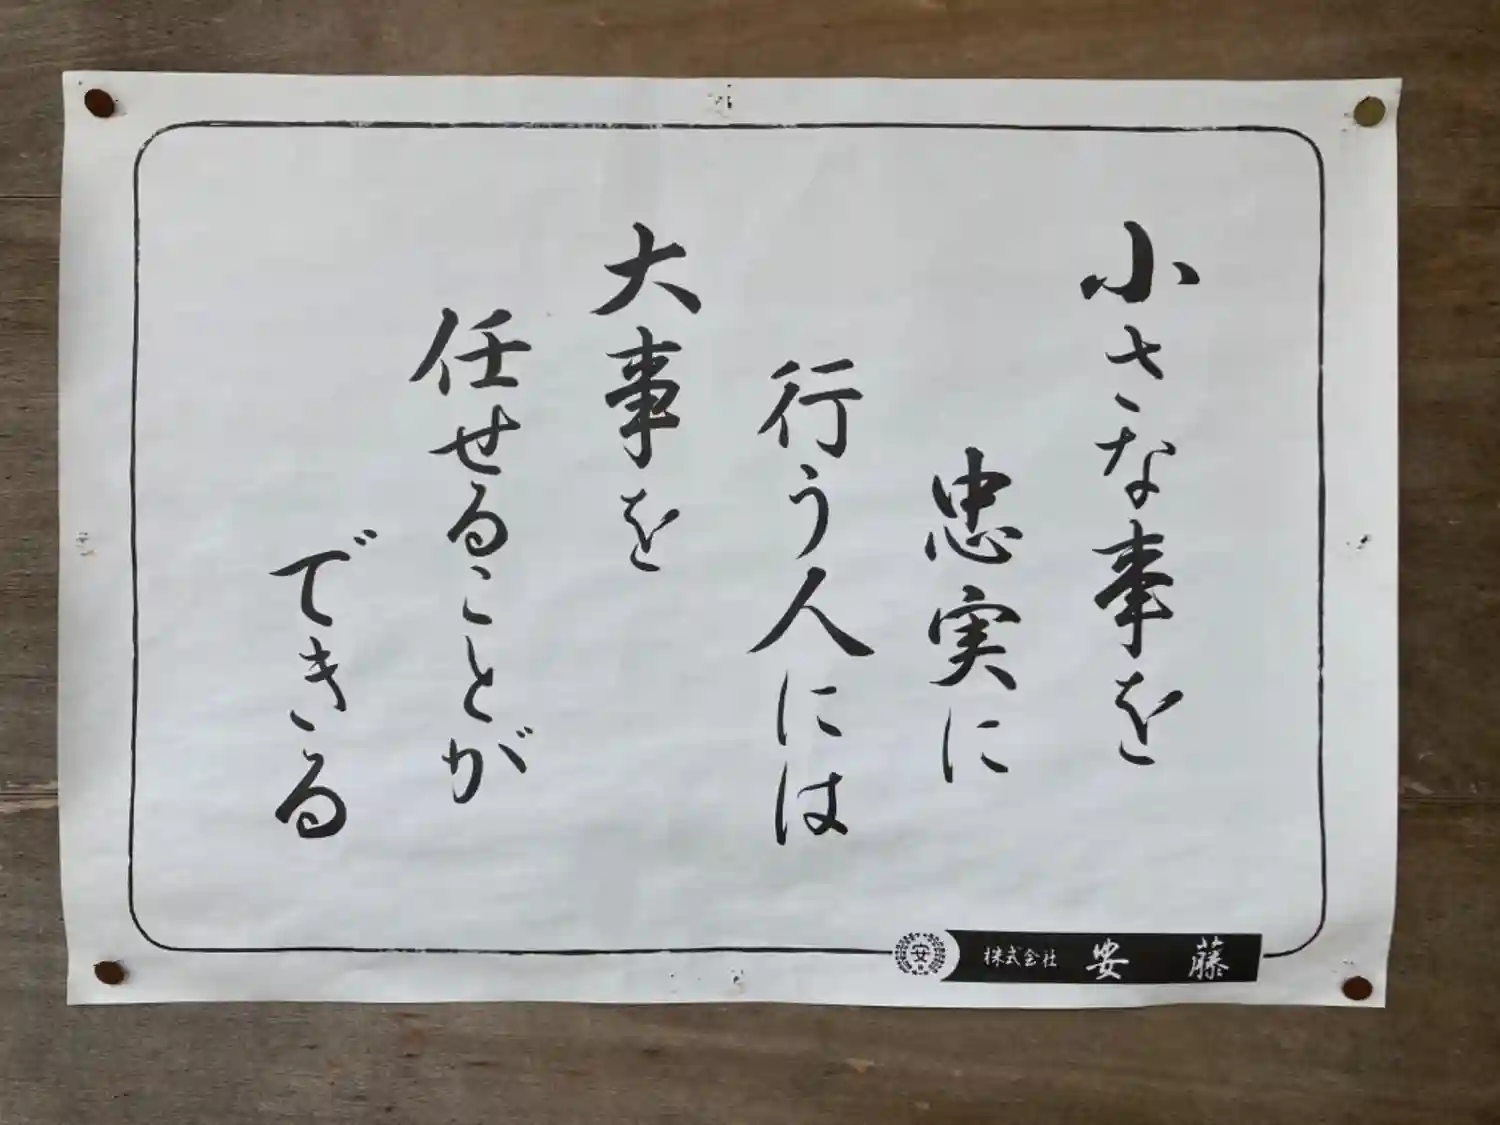 小さな事を
忠実に
行う人には
大事を
任せることが
できる
安
株式会社 安藤